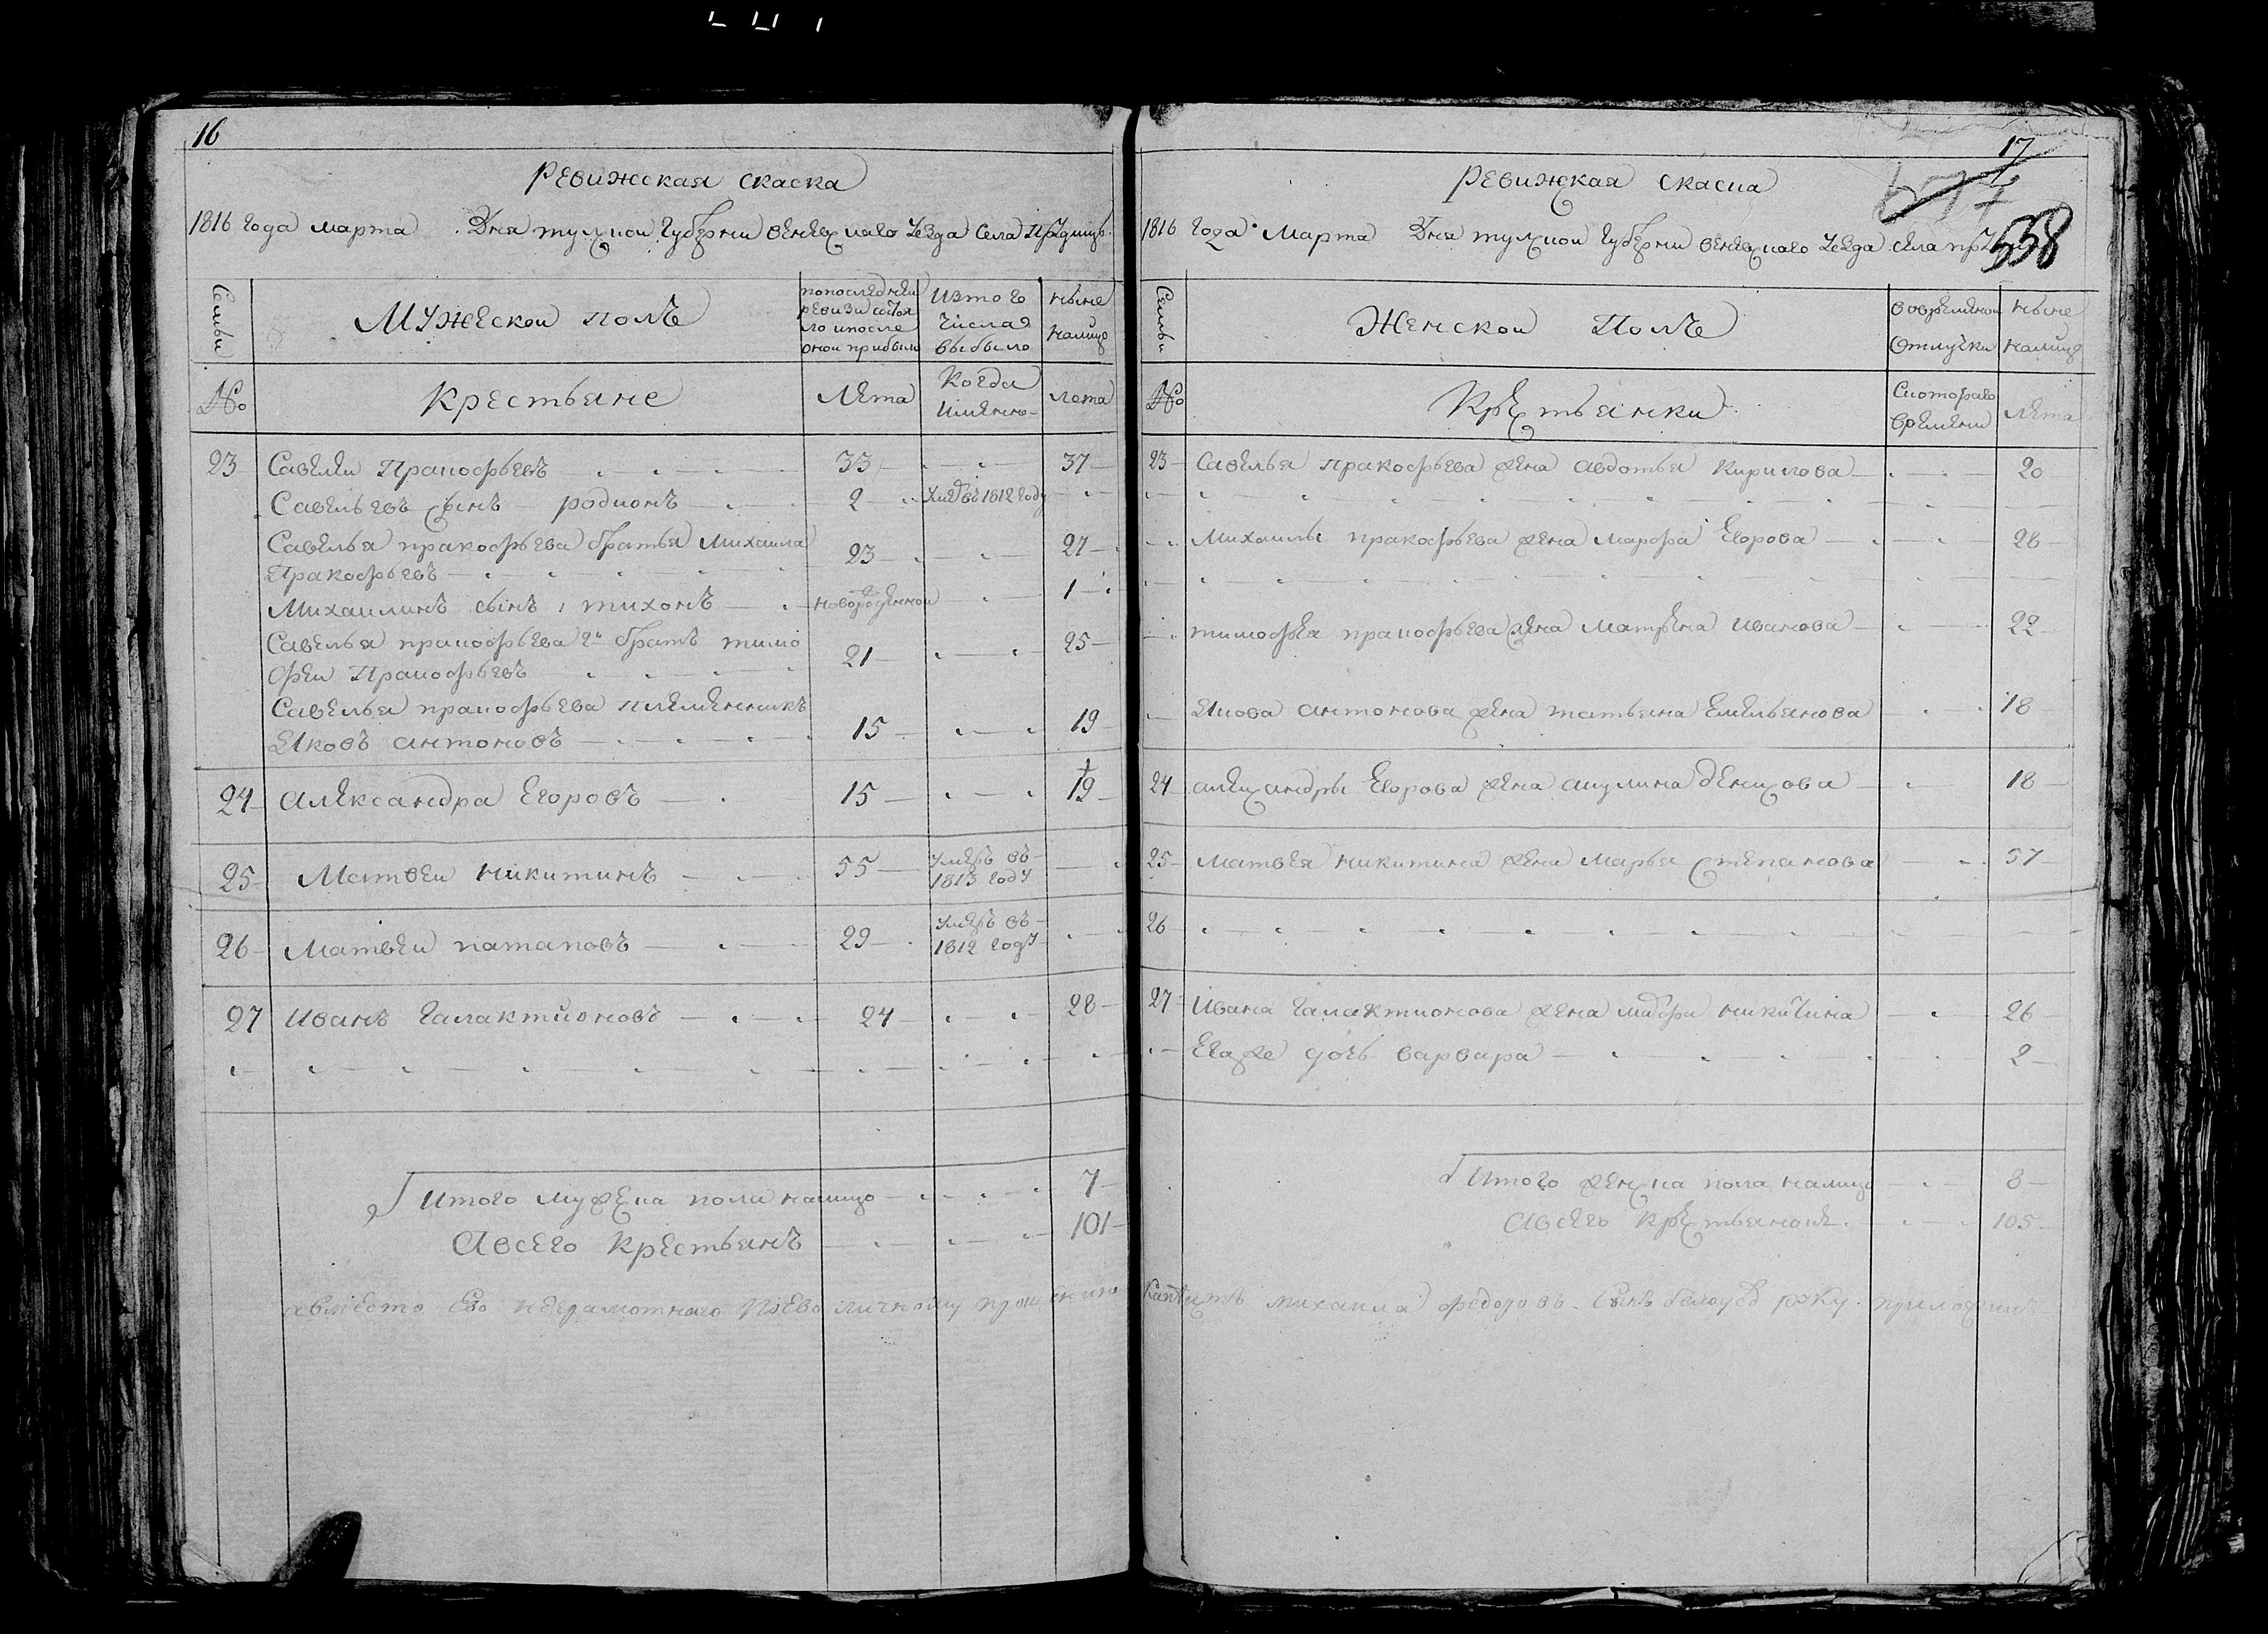 16
Ревижская скаска
1816 года марта Дня тулской губернии веневскаго уезда села
Семьи
Мужеской полъ
попоследней
ревизи состоя
ло ипосле
оной прибыло
Изтого
числа
выбыло
ныне
налицо
№
Крестьяне
Лета
Когда
имянно
лета
23 Савелеи Пракофьевъ 33 37
Савельевъ сынъ родионъ 2 въ 1812 году
Савелья пракофьева братья Михаила
Пракофьевъ 23 27
Михаилинъ сынъ тихонъ новорожденной 1
Савелья пракофьева 2й братъ тимо
феи Пракофьевъ 21 25
Савелья пракофьева племенникъ
Яковъ антоновъ 15 19
24 Александра Егоровъ 15 19
25 Матвеи никитинъ 55 умеръ въ
1813 году
26 Матвеи патаповъ 29 умеръ въ
1812 году
27 Иванъ галактионовъ 24 28
Итого мужеска пола налицо 7
Авсего Крестьянъ 101
авместо ево неграмотнаго поево личному
17
Ревижская скаска
558
1816 года Марта Дня тулской губернии веневскаго уезда села
Семьи
Женской Полъ
вовременной
отлучки
ныне
налицо
№
Крестьянки
Скотораго
времени
Лета
23 Савелья пракофьева жена авдотья кирилова 20
Михаилы пракофьева жена марфа Егорова 28
тимофея пракофьева жена матрена иванова 22
Якова антонова жена татьяна Емельянова 18
24 александры Егорова жена акулина денисова 18
25 матвея никитина жена марья степанова 57
26
27 Ивана галактионова жена никитина 26
Егоже дочь варвара 2
Итого женска пола налицо 8
Авсего Крестьянокъ 105
михаила федоровъ сынъ руку приложилъ